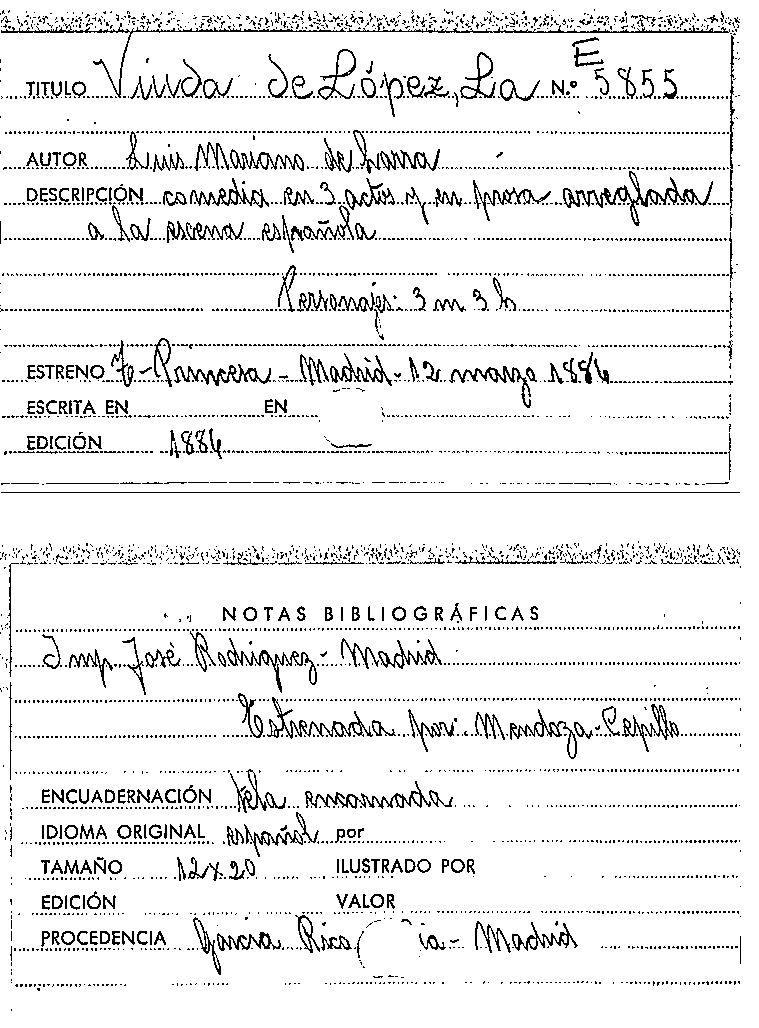 E
TITULO Viuda de López, La N.º 5855
AUTOR Luis Mariano de Larra
DESCRIPCIÓN comedia en 3 actos y en prosa arreglada
a la escena española
Personajes: 3 m 3 h
ESTRENO T-Princesa - Madrid - 12 marzo 1886
ESCRITA EN EN
EDICIÓN 1886
NOTAS BIBLIOGRÁFICAS
Imp. José Rodriguez - Madrid
Estrenada por: Mendoza - Cepillo
ENCUADERNACIÓN tela encarnada
IDIOMA ORIGINAL español por
TAMAÑO 12x20 ILUSTRADO POR
EDICIÓN VALOR
PROCEDENCIA García Rico ia - Madrid